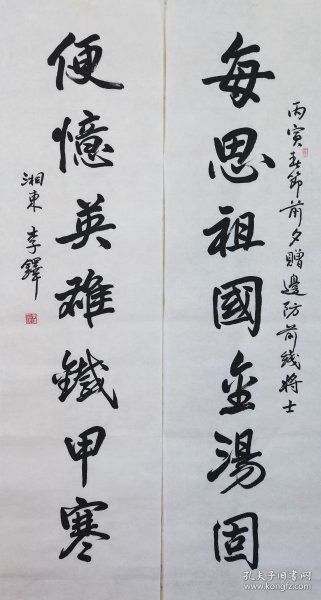 丙寅春节前夕贈邊防前线将士
每思祖國金湯固
便憶英雄鐵甲寒
湘東 李鐸
孔夫子旧书网
www.kongfz.com